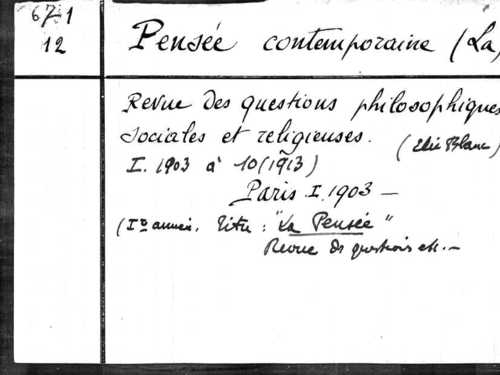 67-1
12
Pensée contemporaine (La)
Revue des questions philosophiques
sociales et religieuses.
(Elie Blanc)
I. 1903 à 10 (1913)
Paris I. 1903 —
(Ire année. Titre : "La Pensée"
Revue de questions etc. —